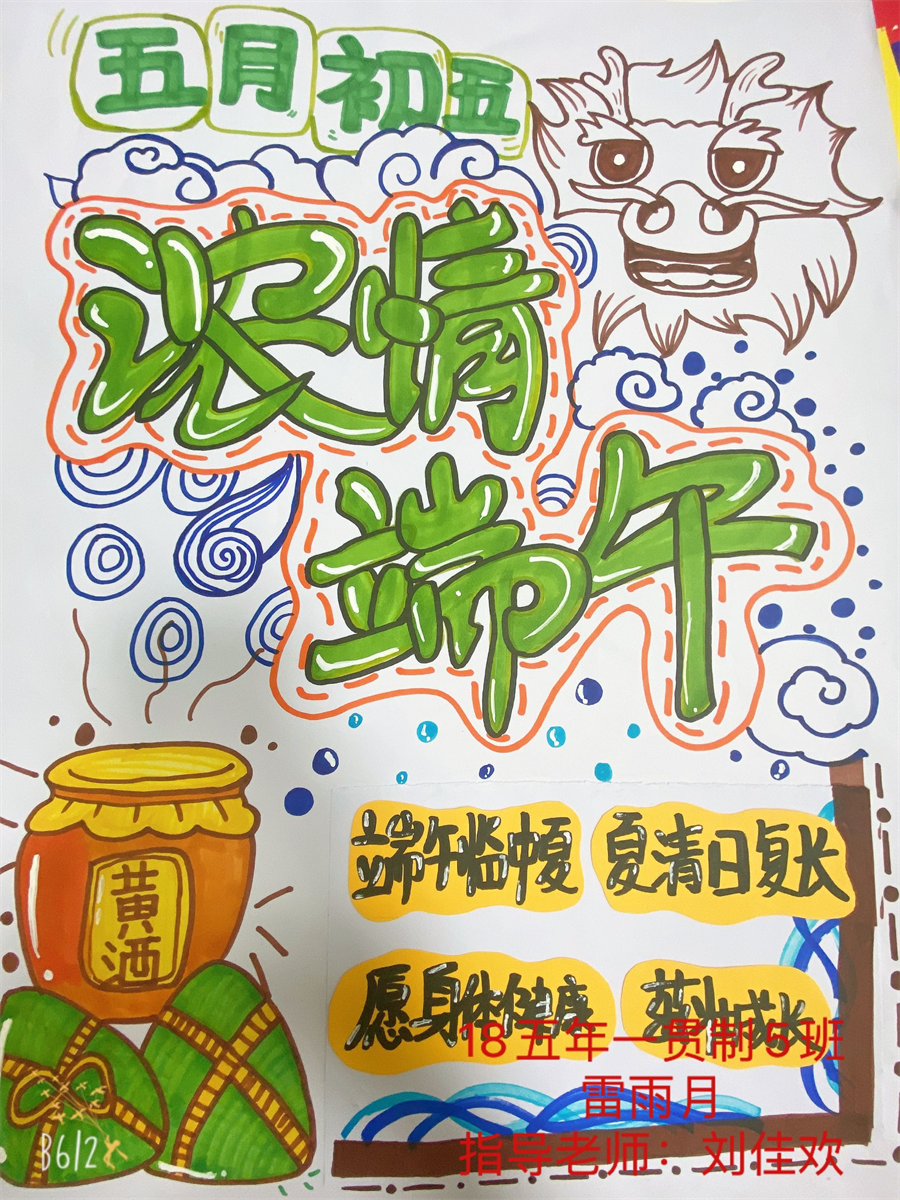 五月初五
浓情
端午
端午临中夏
夏清日复长
愿身体健康
茁壮成长
黄酒
18五年一贯制5班
雷雨月
指导老师：刘佳欢
B612